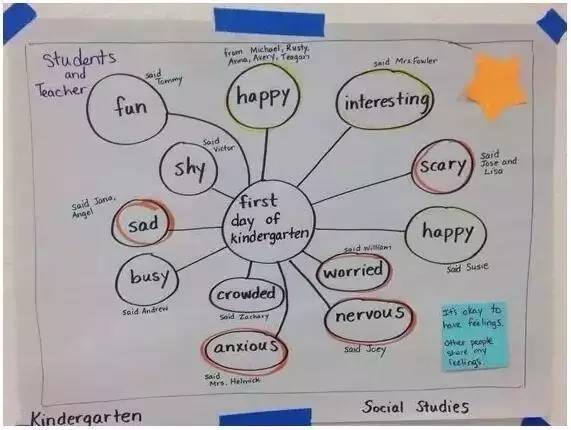 Students
and
Teacher
said
Tommy
fun
from Michael, Rusty,
Anna, Avery, Teagan
happy
said Mrs. Fowler
interesting
said
Victor
shy
scary
said
Jose and
Lisa
said Jana,
Angel
sad
first
day of
kindergarten
happy
said Susie
busy
said Andrew
said William
worried
crowded
said Zachary
nervous
said Joey
anxious
said
Mrs. Helmick
It's okay to
have feelings.
Other people
share my
feelings.
Kindergarten
Social Studies